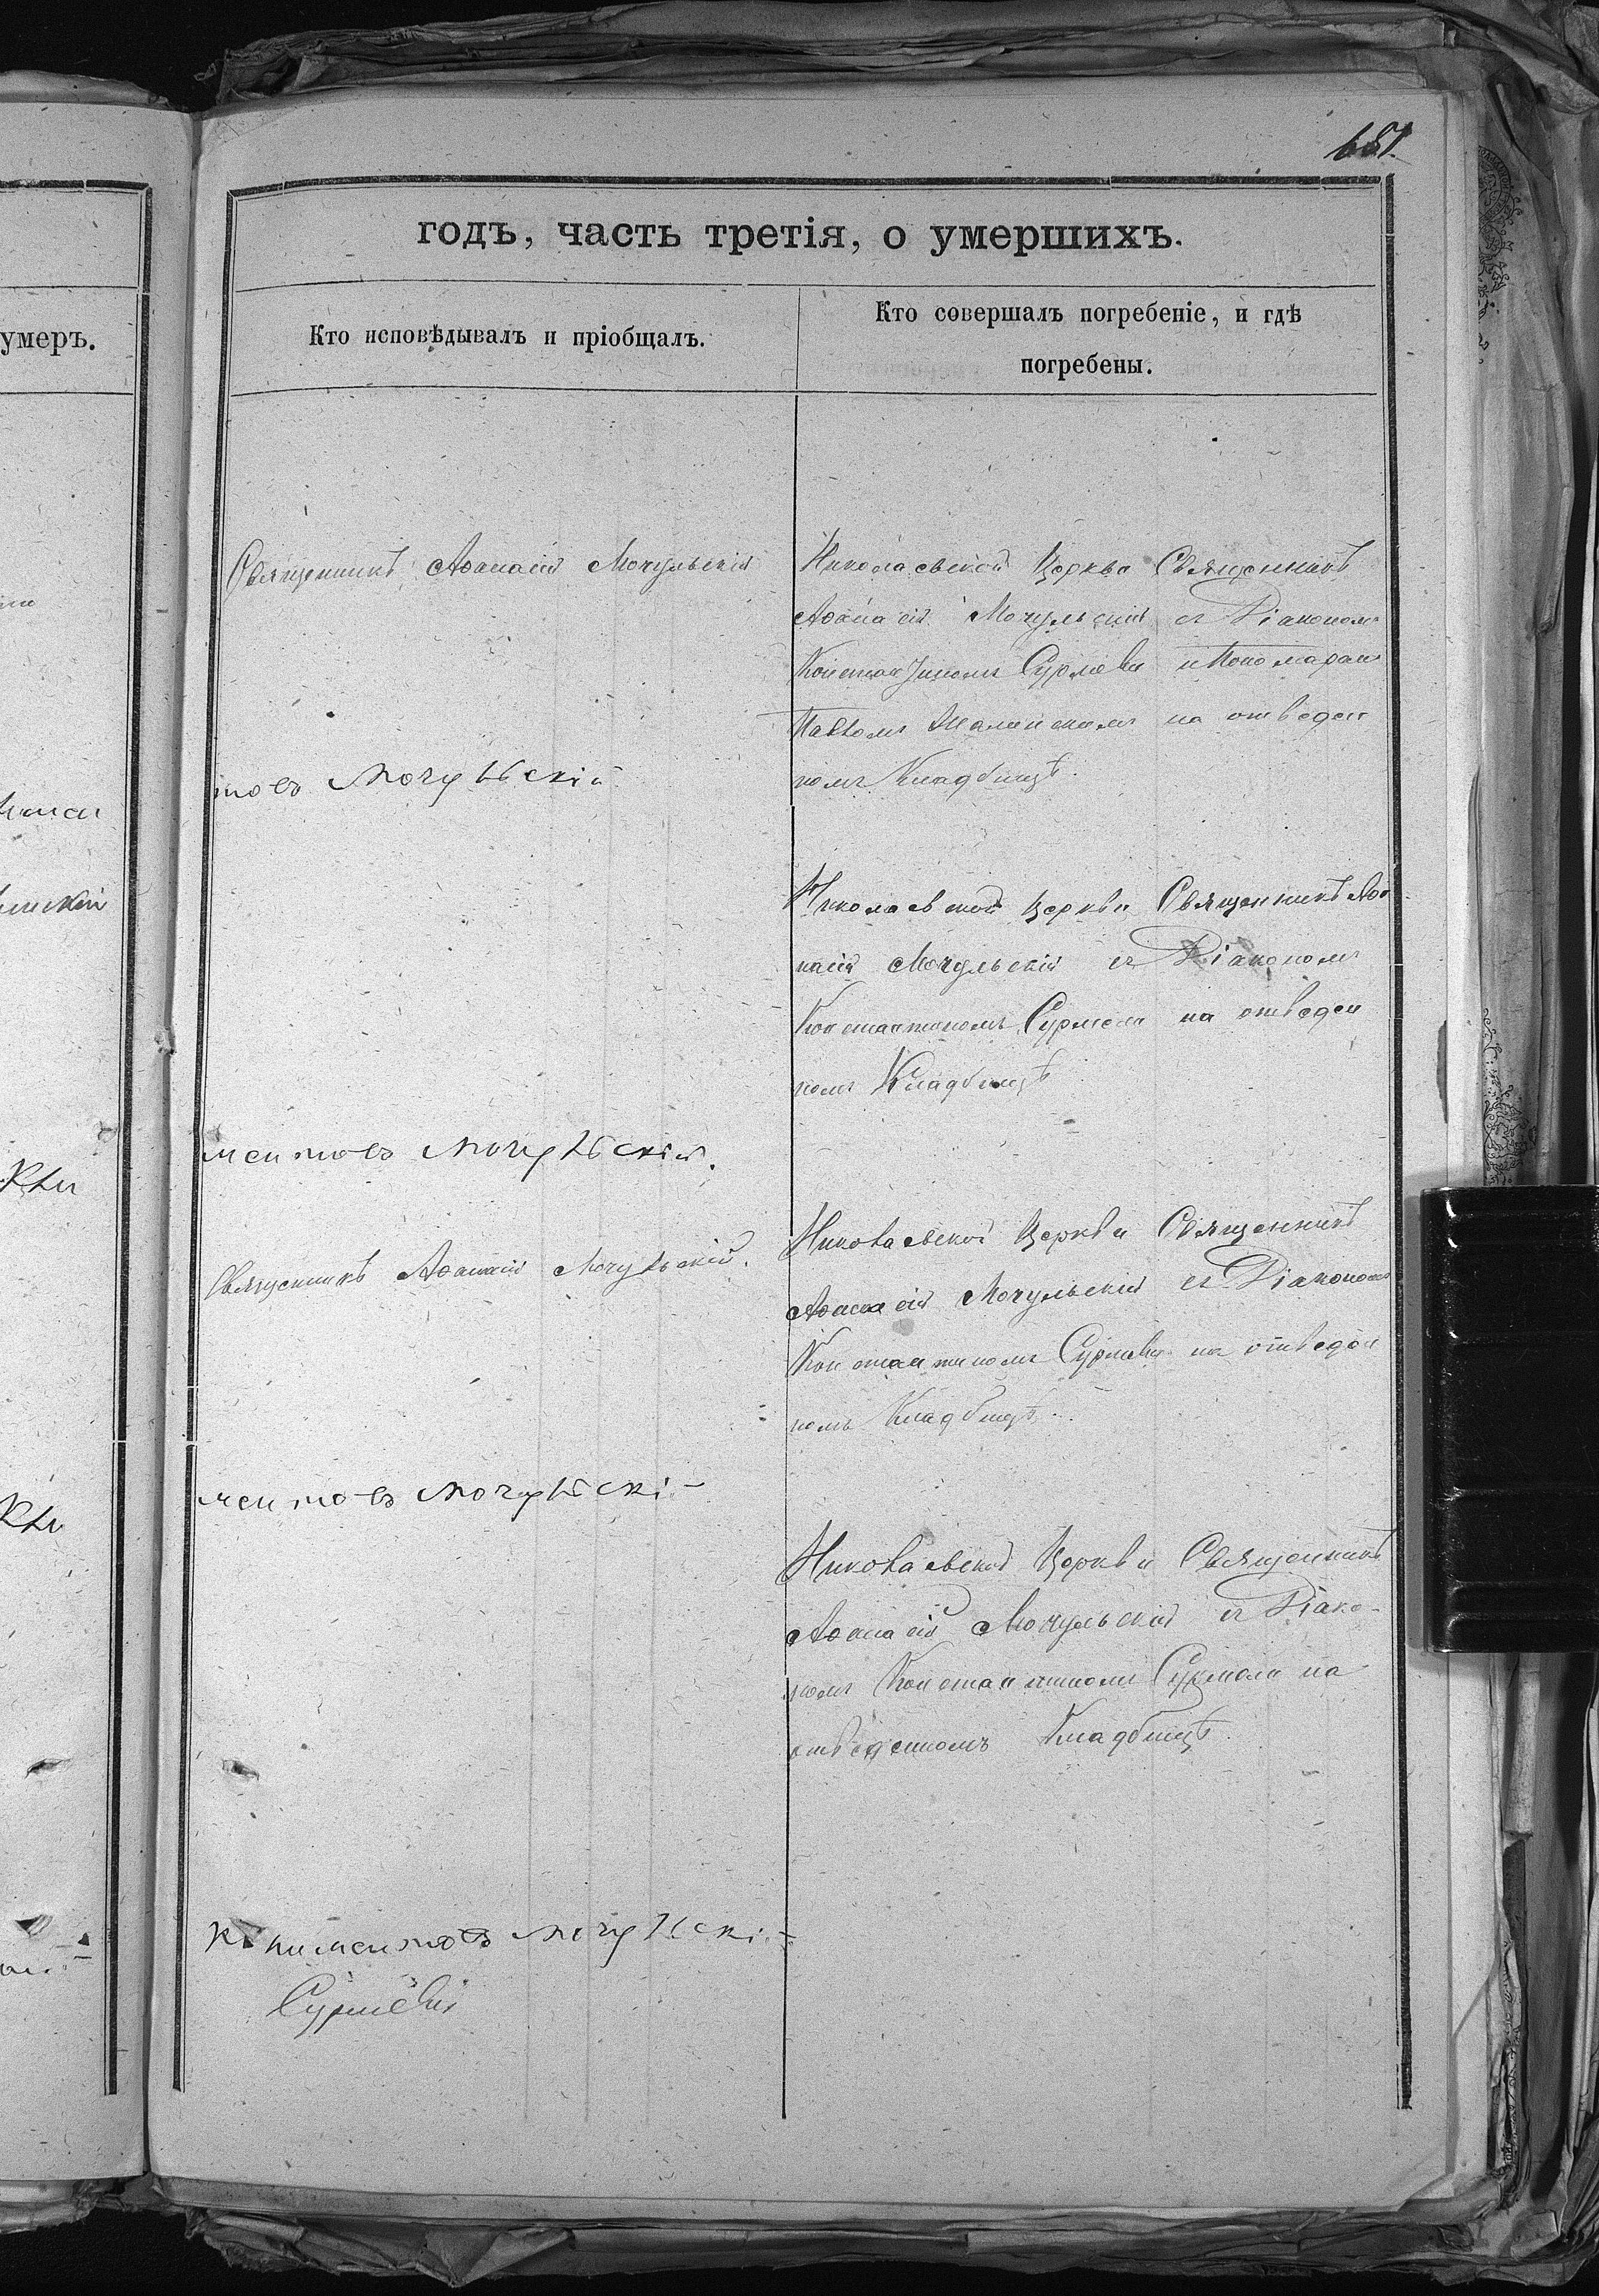 651.
годъ, часть третія, о умершихъ.
умеръ.
Кто исповѣдывалъ и пріобщалъ.
Кто совершалъ погребеніе, и гдѣ
погребены.
Священникъ Аѳанасій Мочульскій
Николаевской Церкви Священникъ
Аѳанасій Мочульскій съ Діакономъ
Константиномъ и Пономаремъ
Павломъ на отведен
номъ Кладбищѣ.
Мочульскій
Николаевской Церкви Священникъ Аѳа
насій Мочульскій съ Діакономъ
Константиномъ на отведен
номъ Кладбищѣ
Мочульскій.
Николаевской Церкви Священникъ
Священникъ Аѳанасій Мочульскій.
Аѳанасій Мочульскій съ Діакономъ
Константиномъ на отведен
номъ Кладбищѣ.
Мочульскій
Николаевской Церкви Священникъ
Аѳанасій Мочульскій съ Діако-
номъ Константиномъ на
отведенномъ Кладбищѣ.
Мочульскій